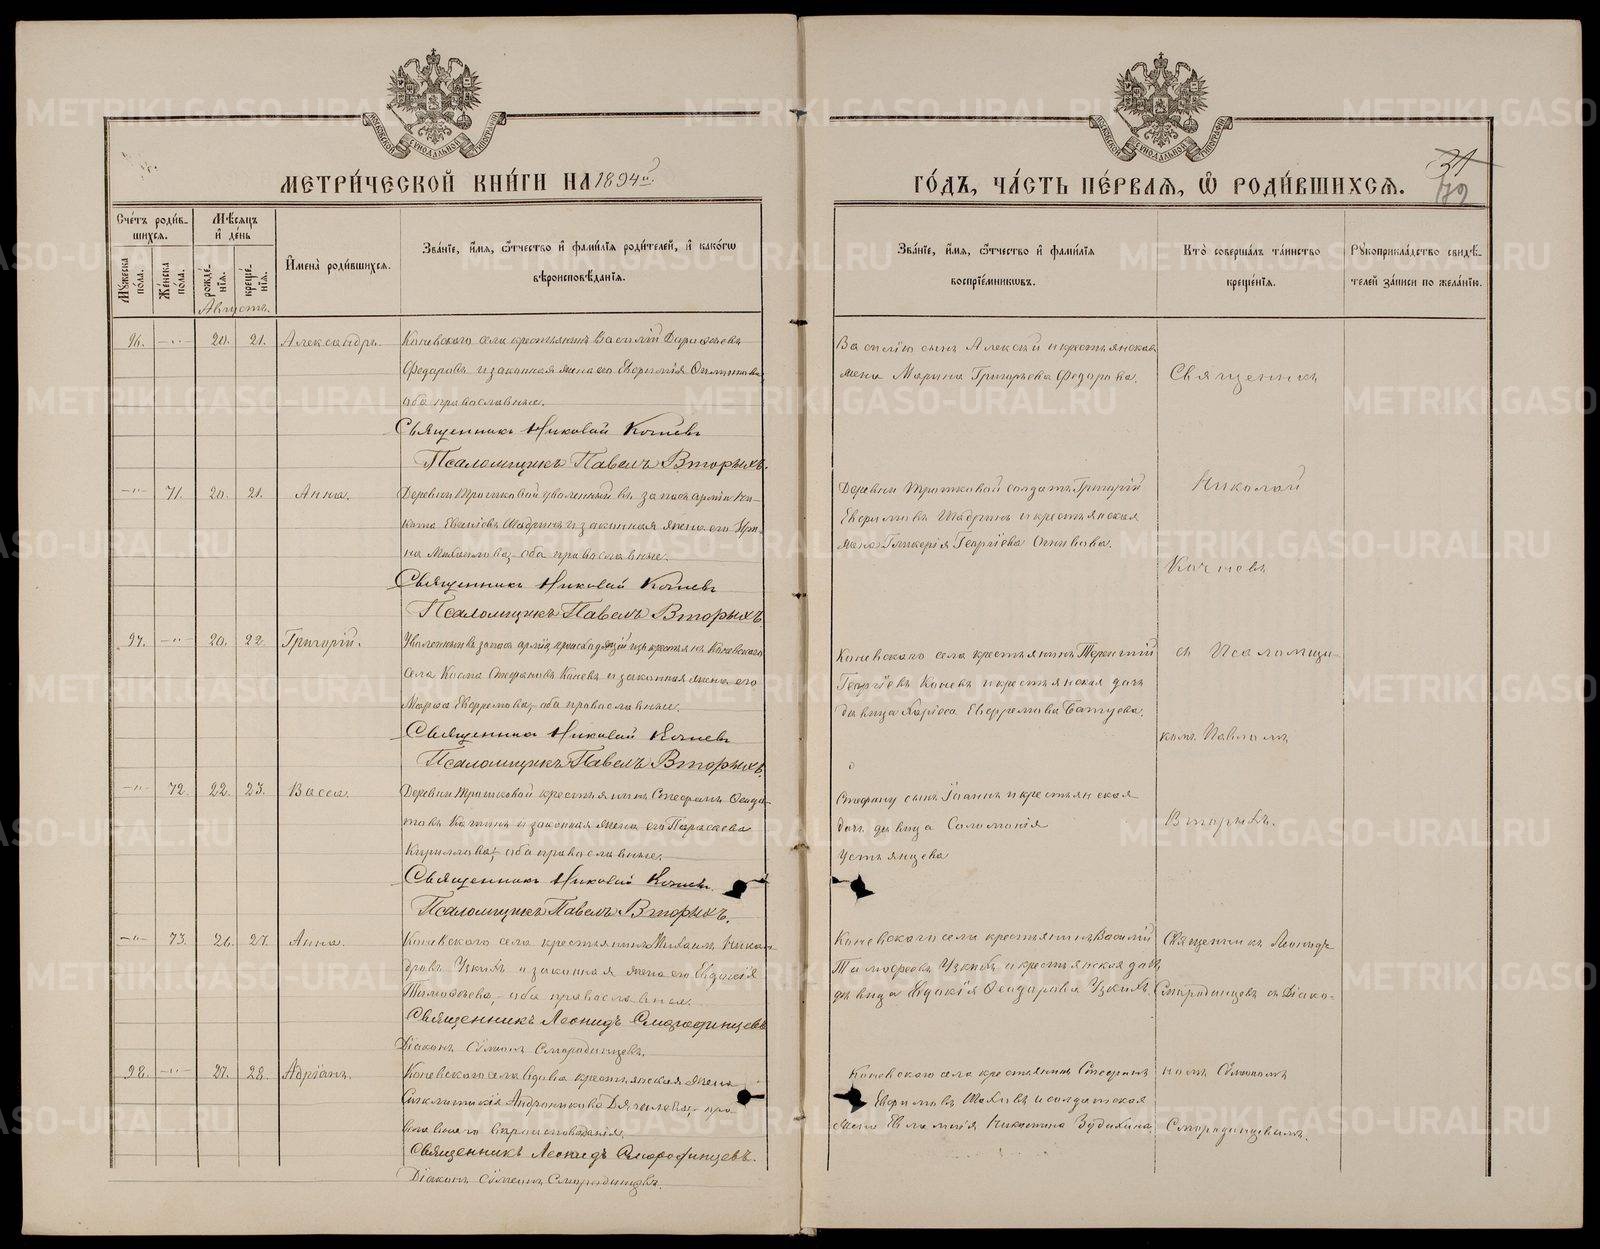 МЕТРИ́ЧЕСКОЙ КНИ́ГИ НА 1894й.
ГО́ДЪ, ЧА́СТЬ ПЕ́РВАЯ, Ѡ҆ РОДИ́ВШИХСЯ.
31
Сче́тъ роди́вшихся.
Мѣ́сяцъ и҆ де́нь
Мꙋ́жеска по́ла.
Же́нска по́ла.
рожде́нїя.
креще́нїя.
И҆мена̀ роди́вшихся.
Зва́нїе, и҆́мя, ѻ҆́тчество и҆ фами́лїя роди́телей, и҆ како́гѡ
вѣроисповѣ́данїя.
Зва́нїе, и҆́мя, ѻ҆́тчество и҆ фами́лїя
воспрїе́мникѡвъ.
Кто̀ соверша́лъ та́инство
креще́нїя.
Рꙋкоприкла́дство свидѣ́-
телей за́писи по жела́нїю.
Августъ.
96. —"— 20. 21. Александръ.
Коневскаго села крестьянинъ Василій
Федоровъ и законная жена его
оба православные.
Священникъ Николай Кочневъ
Псаломщикъ Павелъ Вторыхъ.
Василію сынъ Алексѣй и крестьянская
жена Марина Григорьева Федорова.
Священникъ
—"— 71. 20. 21. Анна.
Деревни уволенный въ запасъ арміи Ни-
кита Шадринъ и законная жена его Ири-
на Михайлова, оба православные.
Священникъ Николай Кочневъ
Псаломщикъ Павелъ Вторыхъ.
Деревни солдатъ Григорій
Шадринъ и крестьянская
жена Гликерія Георгіева
Николай
Кочневъ
97. —"— 20. 22. Григорій.
Уволенный въ запасъ арміи, изъ крестьянъ Коневскаго
села Косма Стефановъ Коневъ и законная жена его
Марѳа Евфремова, оба православные.
Священникъ Николай Кочневъ
Псаломщикъ Павелъ Вторыхъ.
Коневскаго села крестьянинъ Терентій
Георгіевъ Коневъ и крестьянская дочь
дѣвица Евфремова
съ Псаломщи-
комъ Павломъ
Вторыхъ.
—"— 72. 22. 23. Васса.
Деревни крестьянинъ Стефанъ
и законная жена его Параскева
Кириллова, оба православные.
Священникъ Николай Кочневъ.
Псаломщикъ Павелъ Вторыхъ.
Стефану сынъ Іоаннъ и крестьянская
дочь дѣвица Соломонія
Устьянцева
—"— 73. 26. 27. Анна.
Коневскаго села крестьянинъ Михаилъ Никан-
дровъ Узкихъ и законная жена его Евдокія
Тимоѳеева, оба православные.
Священникъ Леонидъ Смородинцевъ
Діаконъ Сѵмеонъ Смородинцевъ.
Коневскаго села крестьянинъ Василій
Тимоѳеевъ Узкихъ и крестьянская дочь
дѣвица Евдокія Ѳеодорова Узкихъ.
Священникъ Леонидъ
Смородинцевъ съ Діако-
номъ Сѵмеономъ
Смородинцевымъ.
98. —"— 27. 28. Адріанъ.
Коневскаго села вдова крестьянская жена
Синклитикія Андроникова пра-
вославнаго вѣроисповѣданія.
Священникъ Леонидъ Смородинцевъ.
Діаконъ Сѵмеонъ Смородинцевъ.
Коневскаго села крестьянинъ Стефанъ
и солдатская
жена Евлампія Никитина Зудихина.
METRIKI.GASO-URAL.RU